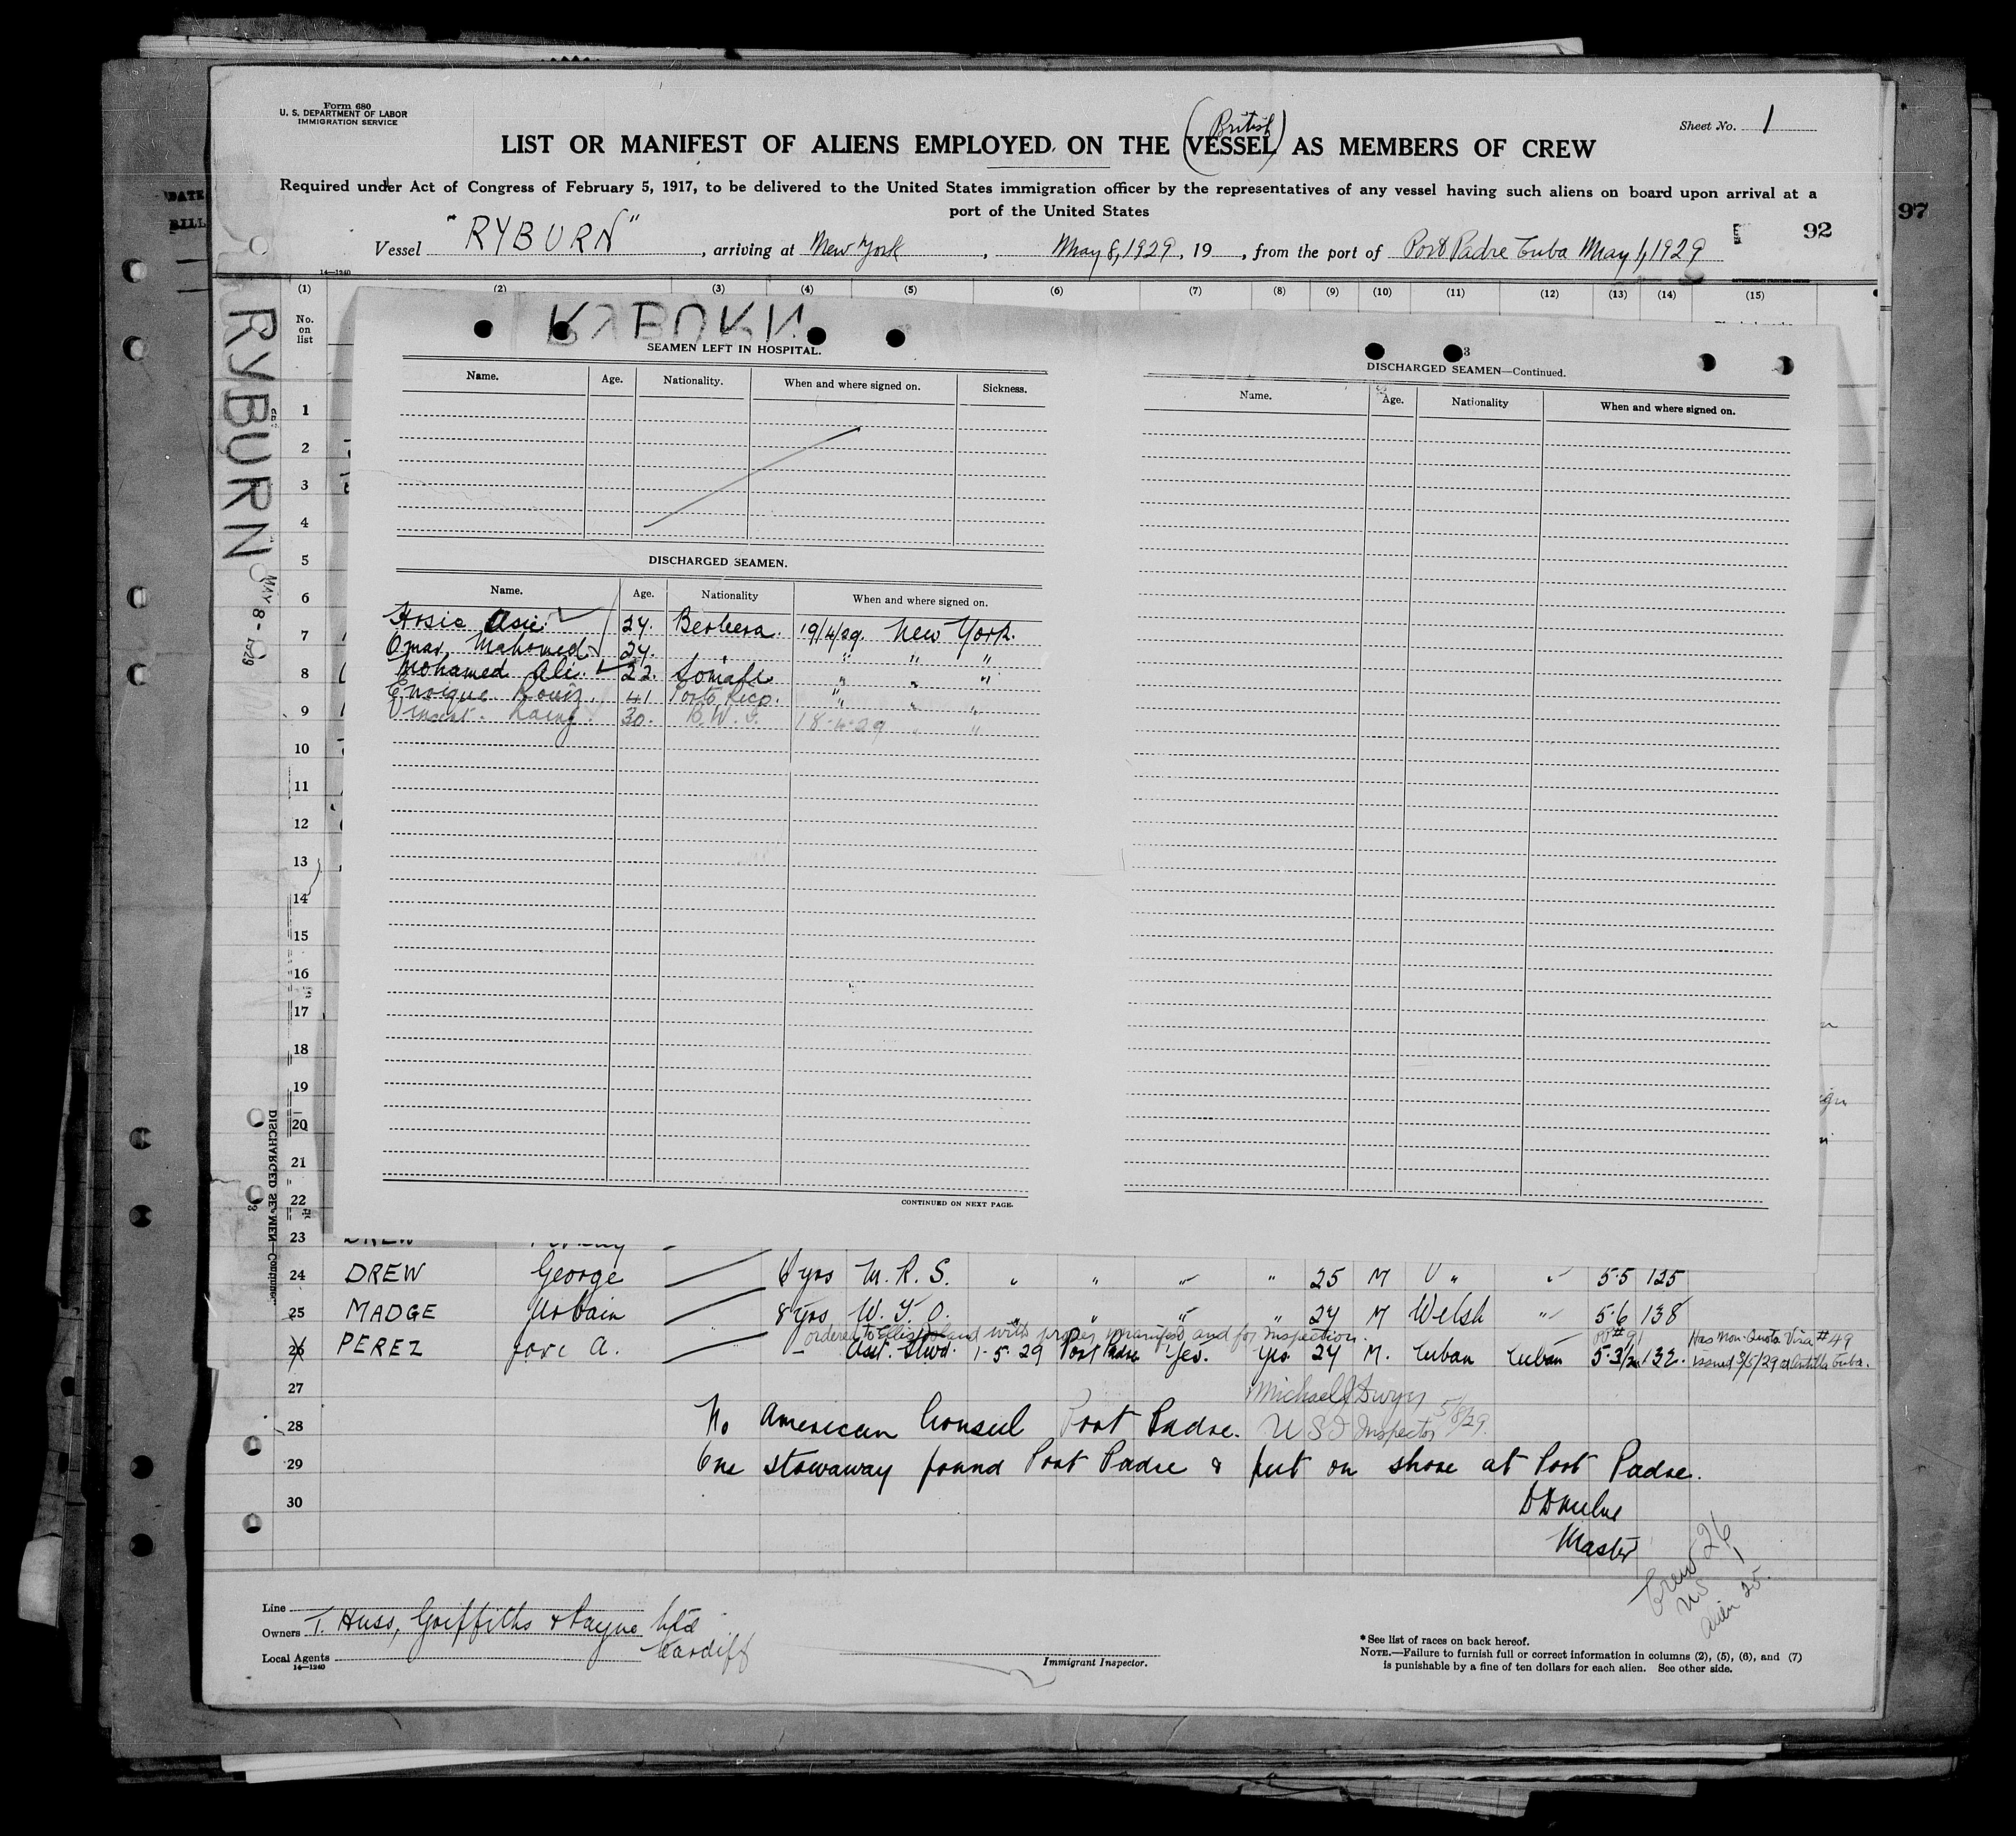 Form 680
U. S. DEPARTMENT OF LABOR
IMMIGRATION SERVICE
Sheet No. 1
(British)
LIST OR MANIFEST OF ALIENS EMPLOYED ON THE VESSEL AS MEMBERS OF CREW
Required under Act of Congress of February 5, 1917, to be delivered to the United States immigration officer by the representatives of any vessel having such aliens on board upon arrival at a
port of the United States
92
97
Vessel "RYBURN", arriving at New York, May 8, 1929, 19 , from the port of Port Padre Cuba May 1, 1929
14—1240
(1) (2) (3) (4) (5) (6) (7) (8) (9) (10) (11) (12) (13) (14) (15)
No. on list
DATE
BILL
RYBURN
MAY 8 - 1929
RYBURN
SEAMEN LEFT IN HOSPITAL.
Name. Age. Nationality. When and where signed on. Sickness.
DISCHARGED SEAMEN.
Name. Age. Nationality When and where signed on.
Hosie Asie 24. Berbera. 19/4/29. New York.
Omar Mahomed 24. " " " "
Mohamed Ali. 22. Somali " " "
Enrique 41 Porto Rico. " " "
Vincent Laing 30. B.W.I. 18-4-29 " "
CONTINUED ON NEXT PAGE.
3
DISCHARGED SEAMEN—Continued.
Name. Age. Nationality When and where signed on.
1
2
3
4
5
6
7
8
9
10
11
12
13
14
15
16
17
18
19
20
21
22
DISCHARGED SEAMEN—Continued.
23 DREW
24 DREW George 6 yrs M. R. S. " " " " 25 M " " 5·5 125
25 MADGE Urbain 8 yrs W. T. O. " " " " 24 M Welsh " 5·6 138
ordered to Ellis Island with proper manifest and for Inspection.
26 PEREZ Jose A. – Asst. Stwd. 1-5-29 Port Padre Yes. Yes 24 M. Cuban Cuban 5·3½ 132. Has Non-Quota Visa #49
issued 3/5/29 at Antilla Cuba.
27 Michael J Dwyer
28 No American Consul Port Padre. U S I Inspector 5/8/29.
29 One stowaway found Port Padre & put on shore at Port Padre.
30 D D Milne
Master
Crew 26
US 1
Alien 25.
Line
Owners T. Huss, Griffiths & Payne Ltd
Cardiff
Local Agents
14—1240
Immigrant Inspector.
*See list of races on back hereof.
NOTE.—Failure to furnish full or correct information in columns (2), (5), (6), and (7)
is punishable by a fine of ten dollars for each alien. See other side.